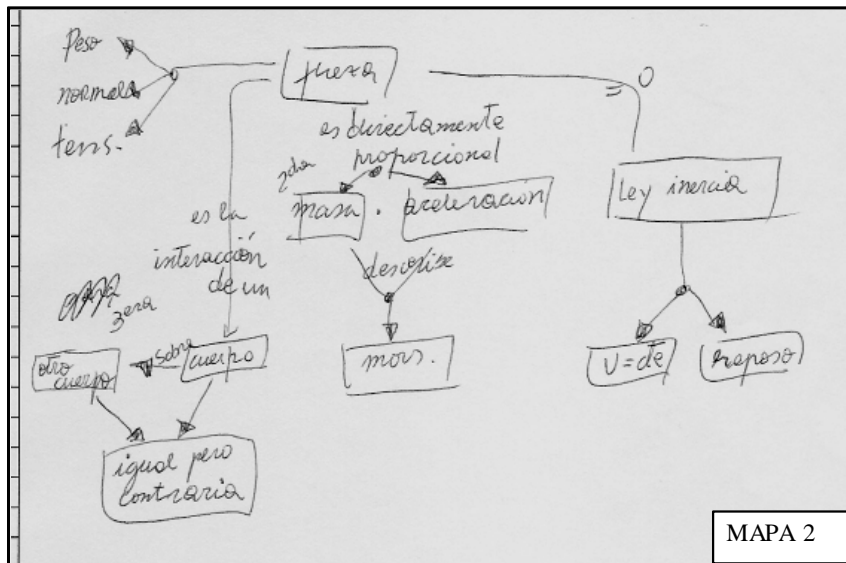 Peso
normal
tens.
fuerza
= 0
es directamente
proporcional
2da
masa . aceleración
Ley inercia
es la
interacción
de un
describe
3era
otro
cuerpo
sobre
cuerpo
mov.
v = cte
reposo
igual pero
contraria
MAPA 2